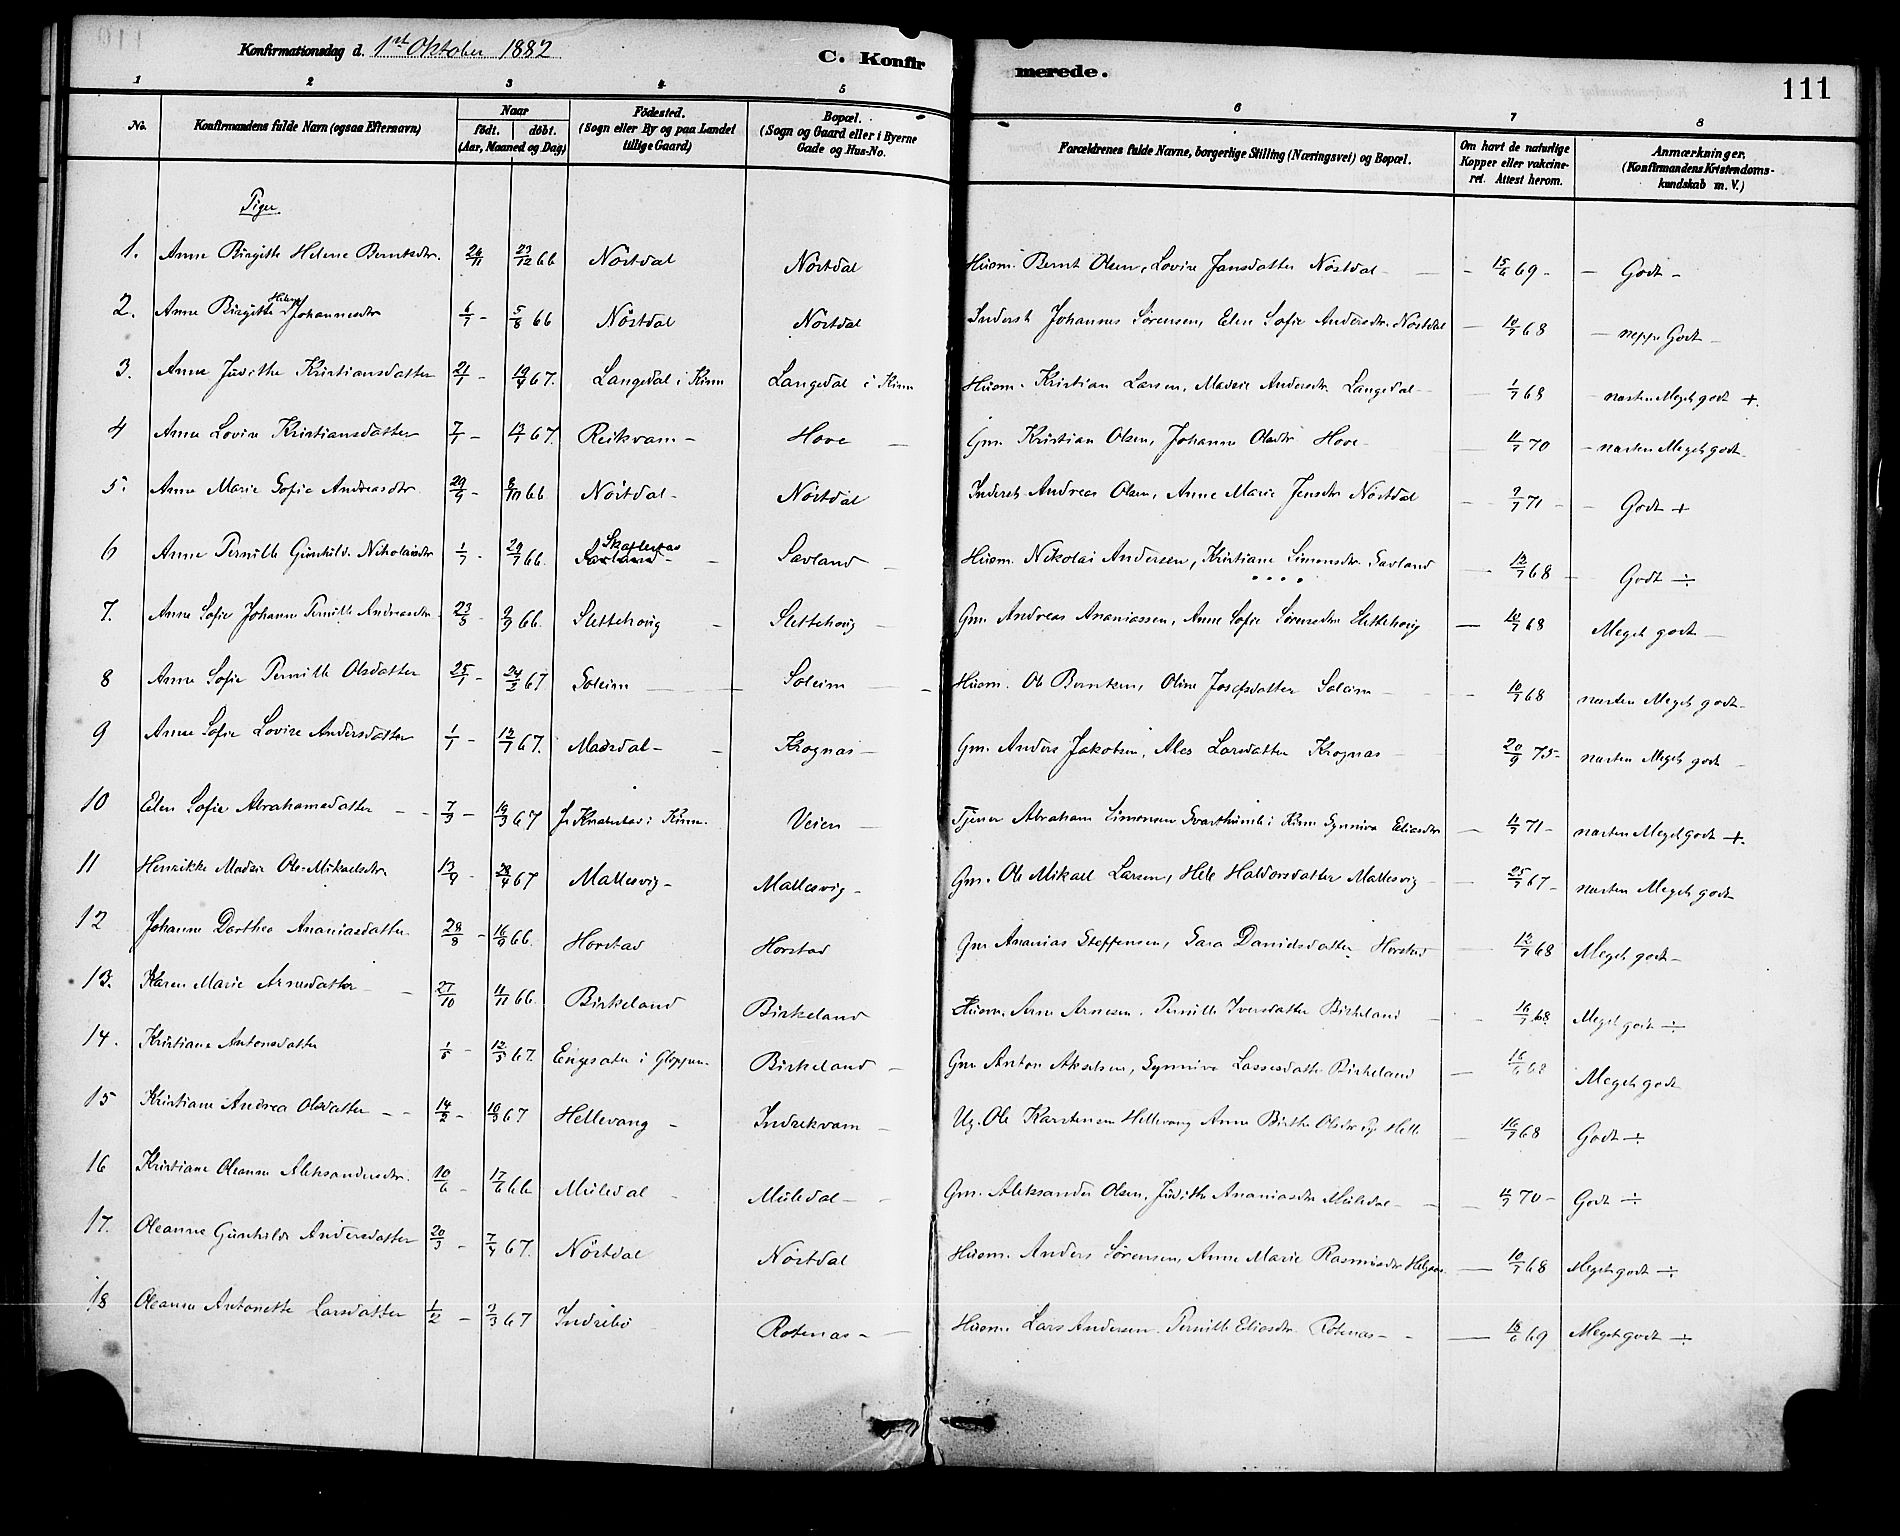 Konfirmationsdag d. 1st Oktober 1882 C. Konfirmerede. 111
1 2 3 4 5 6 7 8
No. Konfirmandens fulde Navn (ogsaa Efternavn) Naar født. døbt. (Aar, Maaned og Dag) Fødested. (Sogn eller By og paa Landet tillige Gaard) Bopæl. (Sogn og Gaard eller i Byerne Gade og Hus-No. Forældrenes fulde Navne, borgerlige Stilling (Næringsvei) og Bopæl. Om havt de naturlige Kopper eller vakcineret. Attest herom. Anmærkninger. (Konfirmandens Kristendomskundskab m. V.)
Piger
1. Anne Birgitte Helene Berntsdtr. 26/11 23/12 66 Nörstdal Nörstdal Husm. Bernt Olsen, Lovise Jansdatter Nöstdal - 15/6 69 - Godt -
2. Anne Birgitte Helene Johannesdtr 6/7 - 5/8 66 Nöstdal Nöstdal Inderst Johannes Sörensen, Elen Sofie Andersdtr. Nöstdal - 10/7 68 - neppe Godt -
3. Anne Judithe Kristiansdatter 21/1 - 19/4 67. Langedal i Kinn Langedal i Kinn Husm. Kristian Larsen, Madsie Andersdtr. Langedal - 1/7 68 - næsten Meget godt +.
4 Anne Lovise Kristiansdatter 7/1 - 67. Reikvam - Hove - Gm. Kristian Olsen, Johanne Olsdtr Hove - 4/7 70 - næsten Meget godt.
5. Anne Marie Sofie Andreasdtr. 29/9 - 8/10 66 Nöstdal - Nöstdal Inderst Andreas Olsen, Anne Marie Jensdtr Nöstdal - 71 - Godt +
6 Anne Pernille Gunhild Nikolaisdtr 1/7 - 29/7 66. Savland - Savland - Husm. Nikolai Andersen, Kristiane Simonsdtr. Savland - 12/7 68 - Godt ÷
7. Anne Sofie Johanne Pernille Andreasdtr. 23/5 - 9/9 66. Slettehovig - Slettehovig - Gm. Andreas Ananiassen, Anne Sofie Sörensdtr Slettehovig - 10/7 68 Meget godt -
8 Anne Sofie Pernille Olsdatter 25/1 - 24/2 67 Soleim - Soleim - Husm. Ole Berntsen, Oline Josefsdatter Soleim - 10/7 68 næsten Meget godt -
9 Anne Sofie Lovise Andersdatter 1/1 - 67. Madsdal - Krognæs - Gm. Anders Jakobsen, Ales Larsdatter Krognæs 20/9 75 - næsten Meget godt -
10 Elen Sofie Abrahamsdatter - 7/3 - 19/3 67 i Kinn. Veien - Tjener Abraham Simonsen Svarthumle i Kinn Synnive Eliasdtr - 4/7 71 - næsten Meget godt +.
11 Henrikke Madsie Ole-Mikaelsdtr. 13/4 - 28/4 67 Mallesvig - Mallesvig - Gm. Ole Mikael Larsen, Hele Haldorsdatter Mallesvig - 25/7 67 - næsten Meget godt
12 Johanne Dorthea Ananiasdatter 28/8 - 16/9 66. Horstad Horstad Gm Ananias Steffensen, Sara Danielsdatter Horstad - 12/7 68 Meget godt -
13. Karen Marie Arnesdatter - 27/10 4/11 66. Birkeland Birkeland Husm. Arne Arnesen. Pernille Iversdatter Birkeland - 16/7 68. Meget godt ÷
14. Kristiane Antonsdatter - 12/5 67. Engesæter i Gloppen. Birkeland - Gm Anton Akselsen, Synnive Lassesdatter Birkeland - 16/6 68 Meget godt
15 Kristiane Andrea Olsdatter - - 14/2 - 10/3 67 Hellevang - Indrekvam - Ug. Ole Karstensen Hellevang Anne Birthe Olsdtr Helle - 16/7 68 Godt ÷
16 Kristiane Oleanne Aleksandersdtr. 10/6 - 17/6 66 Muledal - Muledal - Gm. Aleksander Olsen, Judithe Ananiasdtr Muledal - 4/7 70 - Godt ÷
17. Oleanne Gunhilde Andersdatter 20/3 - 7/4 67. Nöstdal Nöstdal Husm. Anders Sörensen, Anne Marie Rasmusdtr - 10/7 68 Meget godt ÷
18 Oleanne Antonette Larsdatter 1/12 - 3/3 67 Indrebö Rotenæs - Husm. Lars Andersen. Pernille Eliasdtr. Rotenæs - - 18/6 69 Meget godt ÷